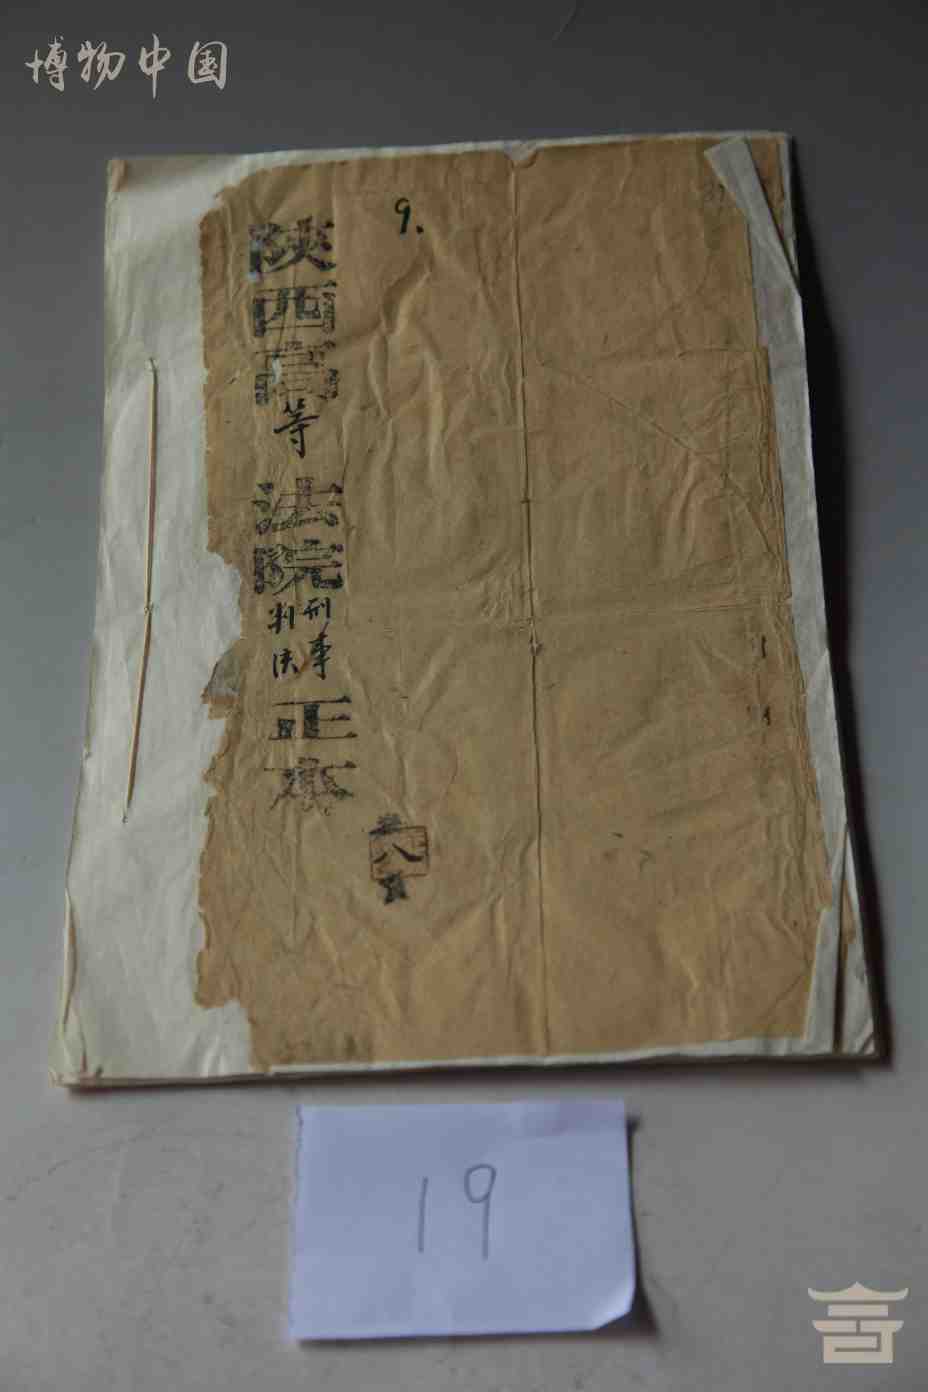 博物中国
9.
陕西高等法院刑事判决正本
八
19